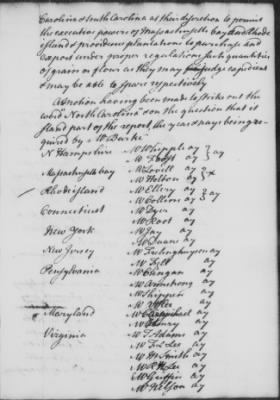 Carolina & South Carolina at their discretion to permit
the executive powers of Massachusetts bay and Rhode
island & providence plantations to purchase and
export under proper regulations such quantities
of grain or flour as they may judge expedient
& may be able to spare respectively
A motion having been made to strike out the
word North Carolina & on the question that it
stand part of the report, the yeas & nays being re-
quired by Mr Burke
N Hampshire Mr Whipple ay } ay
Mr Frost ay
Massachusetts bay Mr Lovell ay } x
Mr Holten ay
Rhode island Mr Ellery ay } ay
Mr Collins ay
Connecticut Mr Dyer ay
Mr Root ay
New York Mr Jay ay
Mr Duane ay
New Jersey Mr Frelinghuysen ay
Mr Fell ay
Pensylvania Mr Clingan ay
Mr Armstrong ay
Mr Shippen ay
Mr Atlee ay
Maryland Mr Carmichael ay
Mr Henry ay
Virginia Mr T Adams ay
Mr F L Lee ay
Mr M Smith ay
Mr R H Lee ay
Mr Griffin ay
Mr Nelson ay